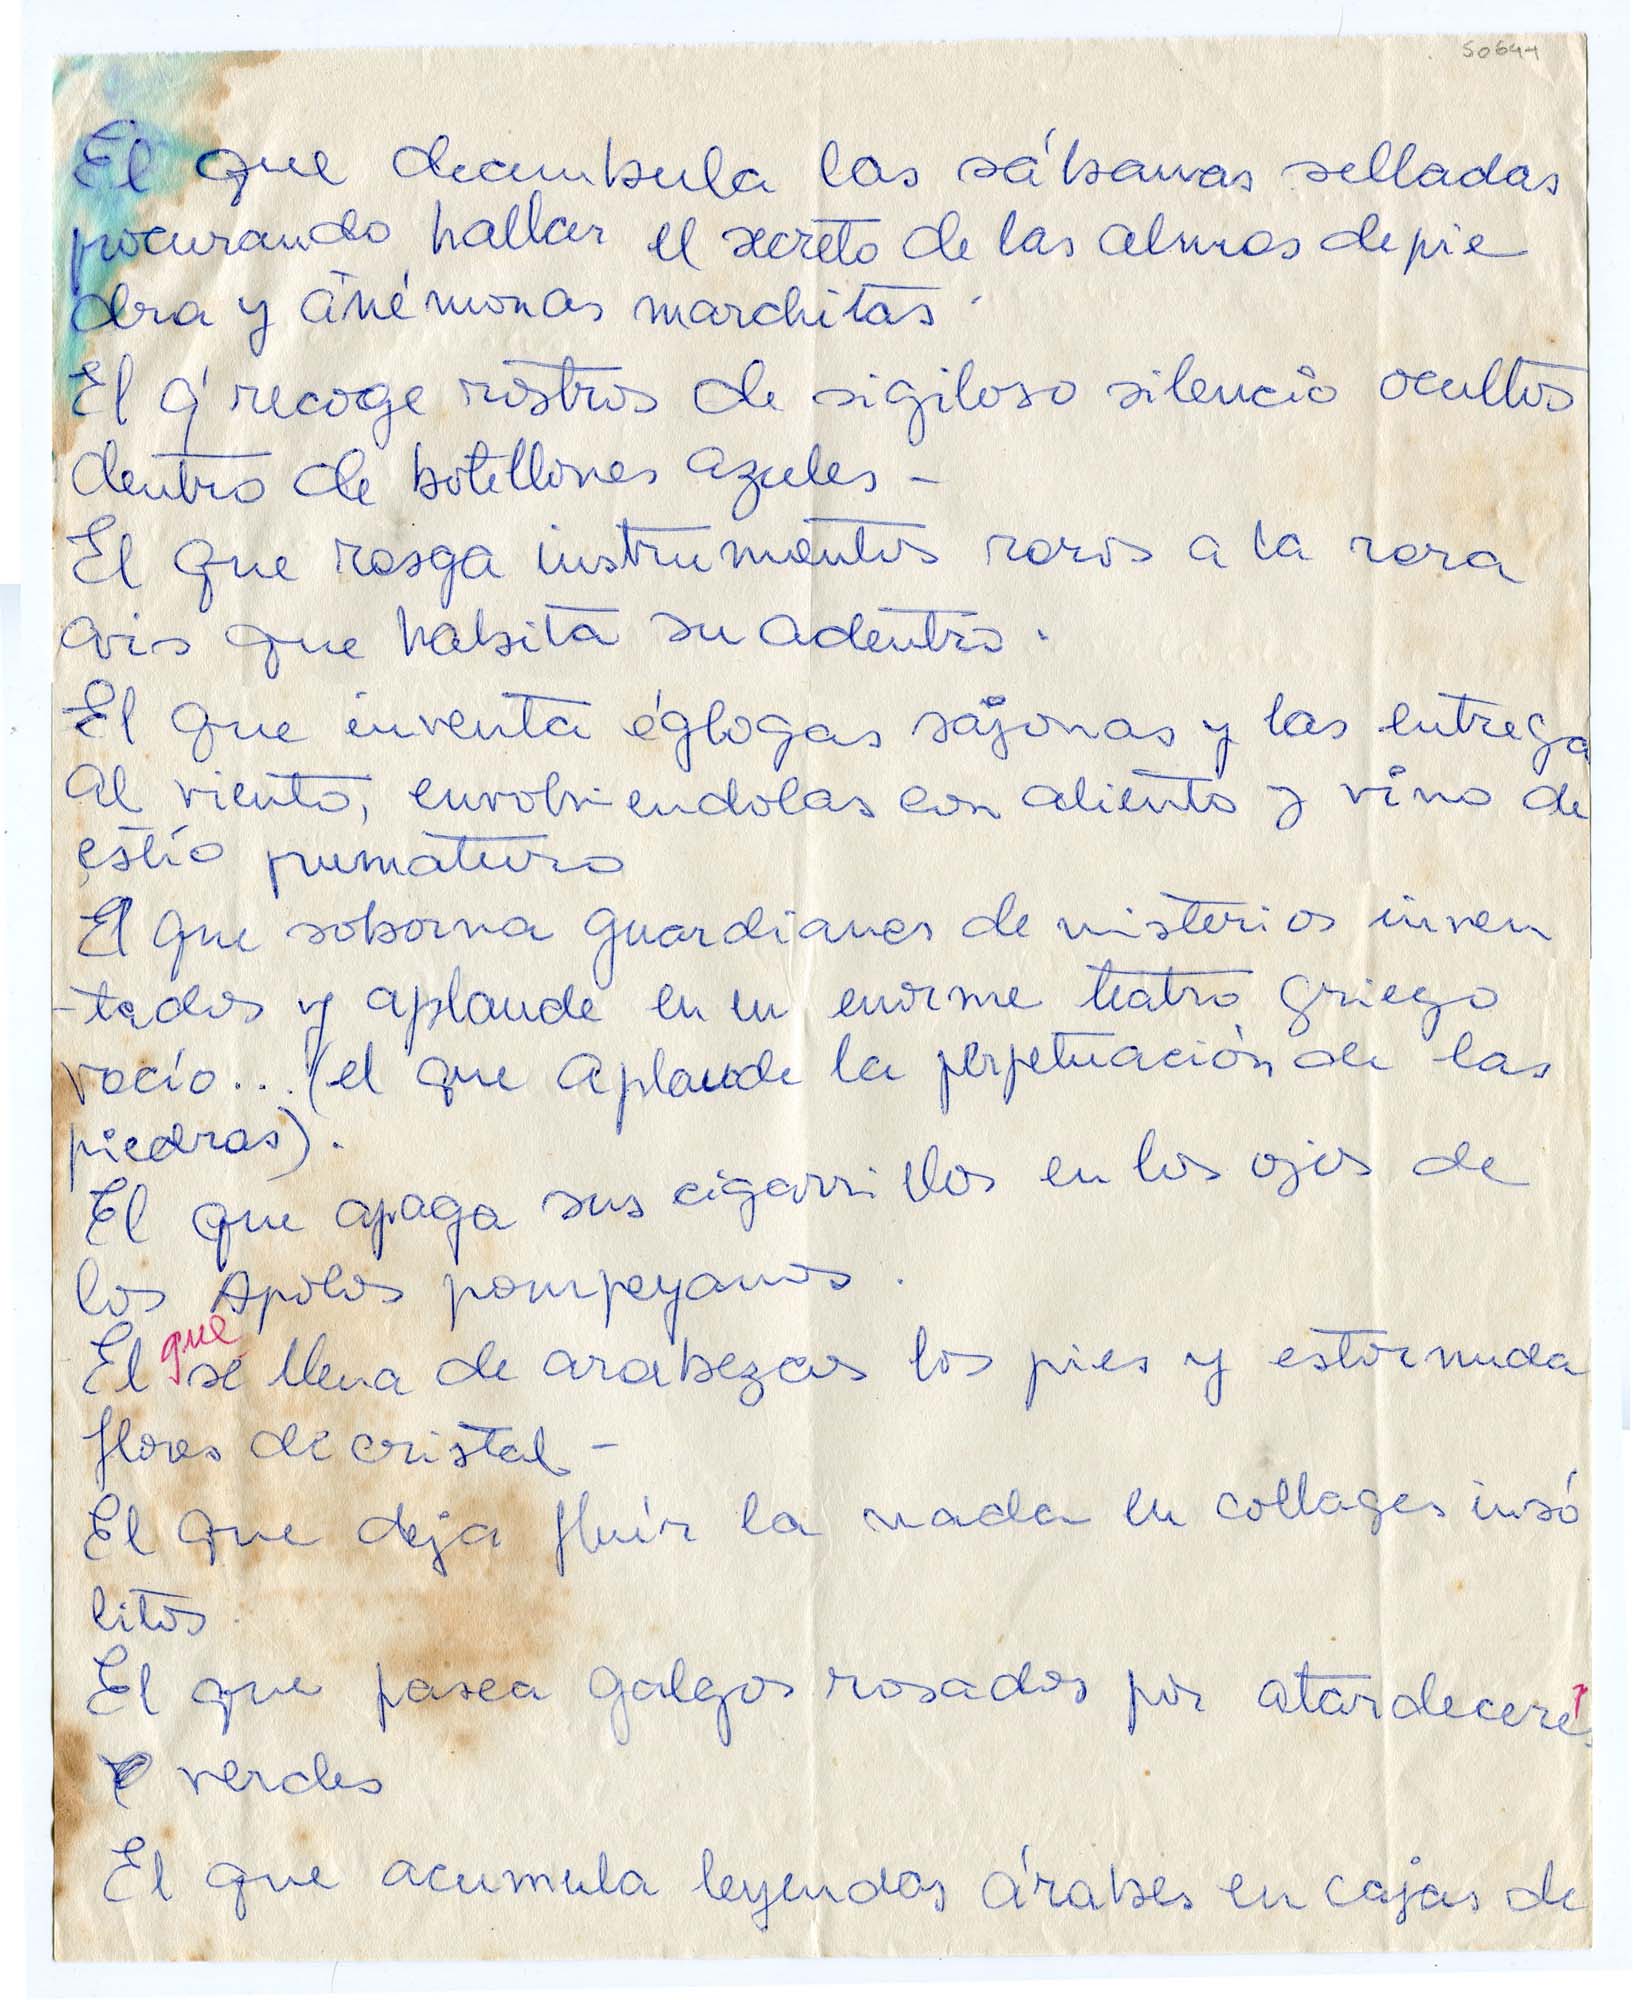 50644
El que deambula las sábanas selladas
procurando hallar el secreto de las almas de pie
dra y ánémonas marchitas.
El q' recoge rostros de sigiloso silencio ocultos
dentro de botellones azules -
El que rasga instrumentos raros a la rara
avis que habita su adentro.
El que inventa églogas sajonas y las entrega
al viento, envolviendolas con aliento y vino de
estío prematuro
El que soborna guardianes de misterios inven
-tados y aplaude en un enorme teatro griego
vacío... (el que aplaude la perpetuación de las
piedras).
El que apaga sus cigarrillos en los ojos de
los Apolos pompeyanos.
El que se llena de arabezcos los pies y estornuda
flores de cristal -
El que deja fluír la nada en collages insó
litos.
El que pasea galgos rosados por atardeceres
verdes
El que acumula leyendas árabes en cajas de